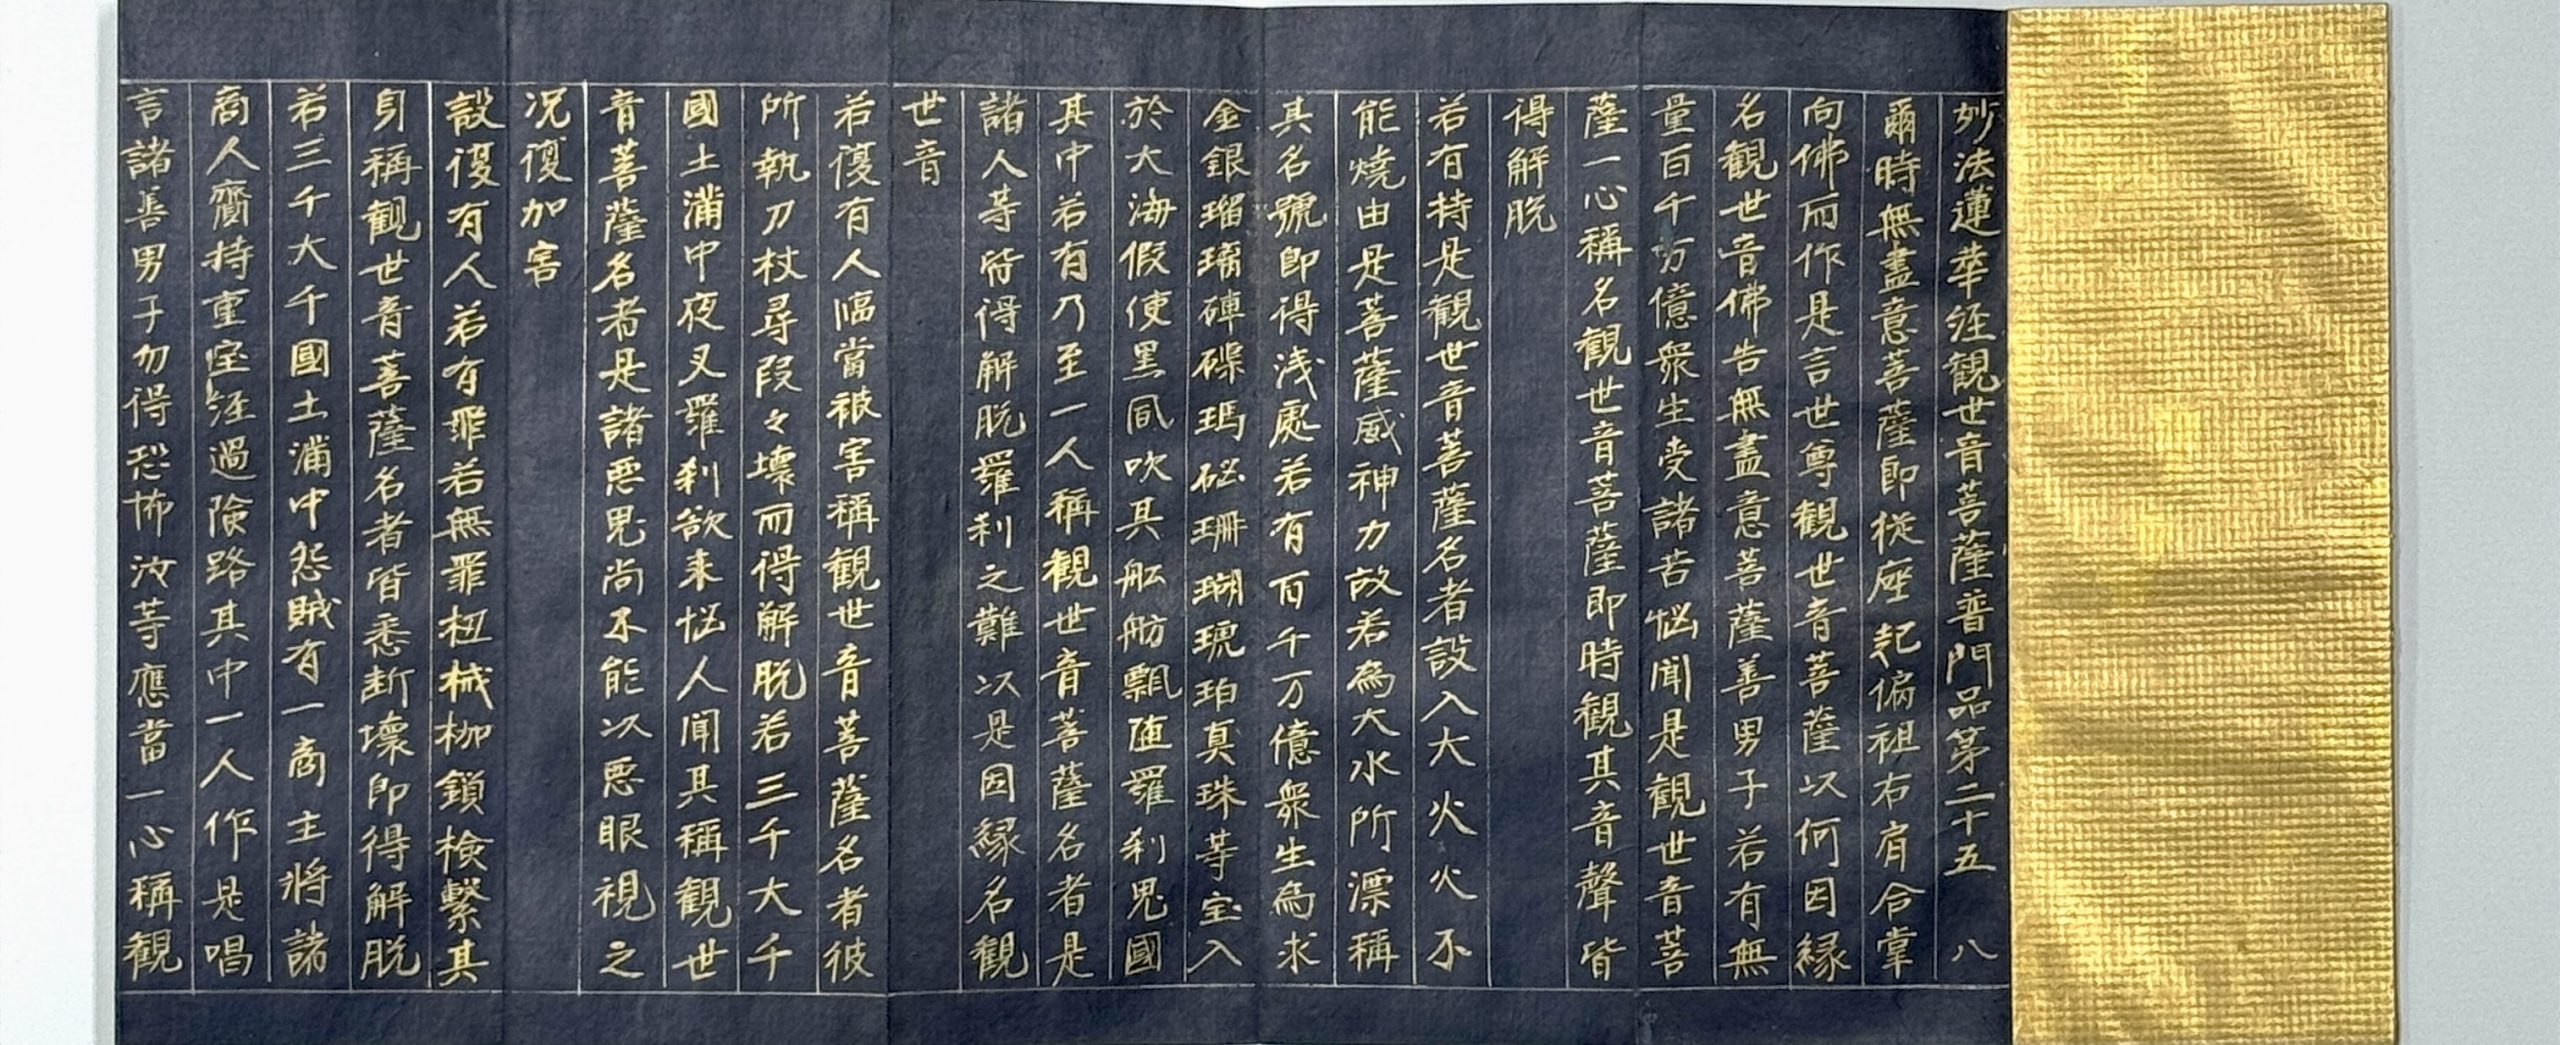 妙法蓮華経觀世音菩薩普門品第二十五　八
爾時無盡意菩薩即從座起偏袒右肩合掌
向佛而作是言世尊觀世音菩薩以何因縁
名觀世音佛告無盡意菩薩善男子若有無
量百千万億衆生受諸苦悩聞是觀世音菩
薩一心稱名觀世音菩薩即時觀其音聲皆
得解脱
若有持是觀世音菩薩名者設入大火火不
能燒由是菩薩威神力故若為大水所漂稱
其名號即得浅處若有百千万億衆生為求
金銀瑠璃硨磲瑪碯珊瑚琥珀真珠等宝入
於大海假使黒風吹其舩舫飄堕羅刹鬼國
其中若有乃至一人稱觀世音菩薩名者是
諸人等皆得解脱羅刹之難以是因縁名觀
世音
若復有人臨當被害稱觀世音菩薩名者彼
所執刀杖尋段々壊而得解脱若三千大千
國土滿中夜叉羅刹欲来悩人聞其稱觀世
音菩薩名者是諸悪鬼尚不能以悪眼視之
況復加害
設復有人若有罪若無罪杻械枷鎖檢繫其
身稱觀世音菩薩名者皆悉断壊即得解脱
若三千大千國土滿中怨賊有一商主将諸
商人齎持重宝経過険路其中一人作是唱
言諸善男子勿得恐怖汝等應當一心稱觀